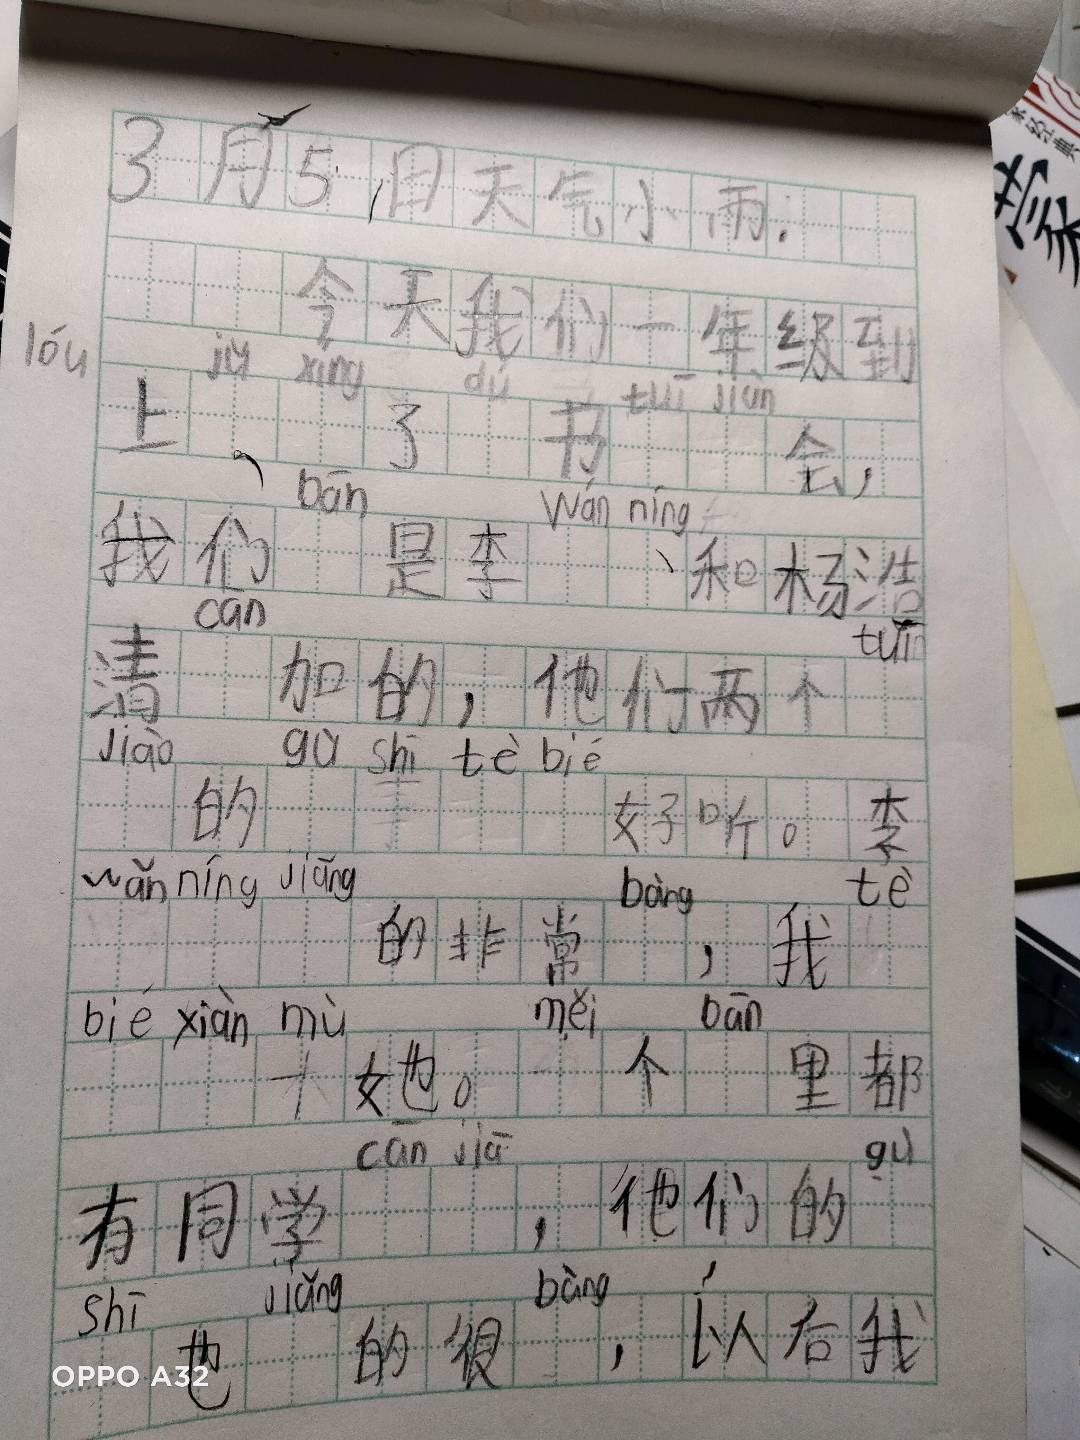 3月5日天气小雨.
今天我们一年级到
lóu jǔ xíng dú tuī jiàn
上、了书会,
bān wán níng
我们是李、和杨浩
cān tuī
清加的,他们两个
jiào gù shī tè bié
的好听。李
wǎn níng jiāng bàng tè
的非常,我
bié xiàn mù měi bān
她。个里都
cān jiā gù
有同学,他们的
shī jiǎng bàng
也的很,以后我
OPPO A32